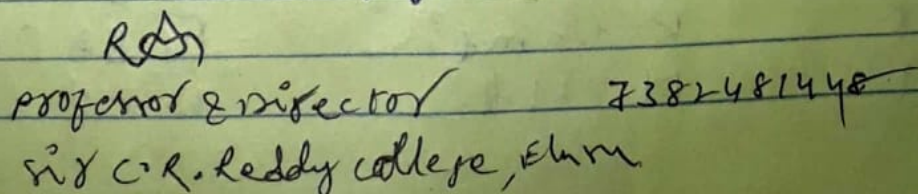 professor & Director 7382481448
sir C.R. Reddy college, Eluru